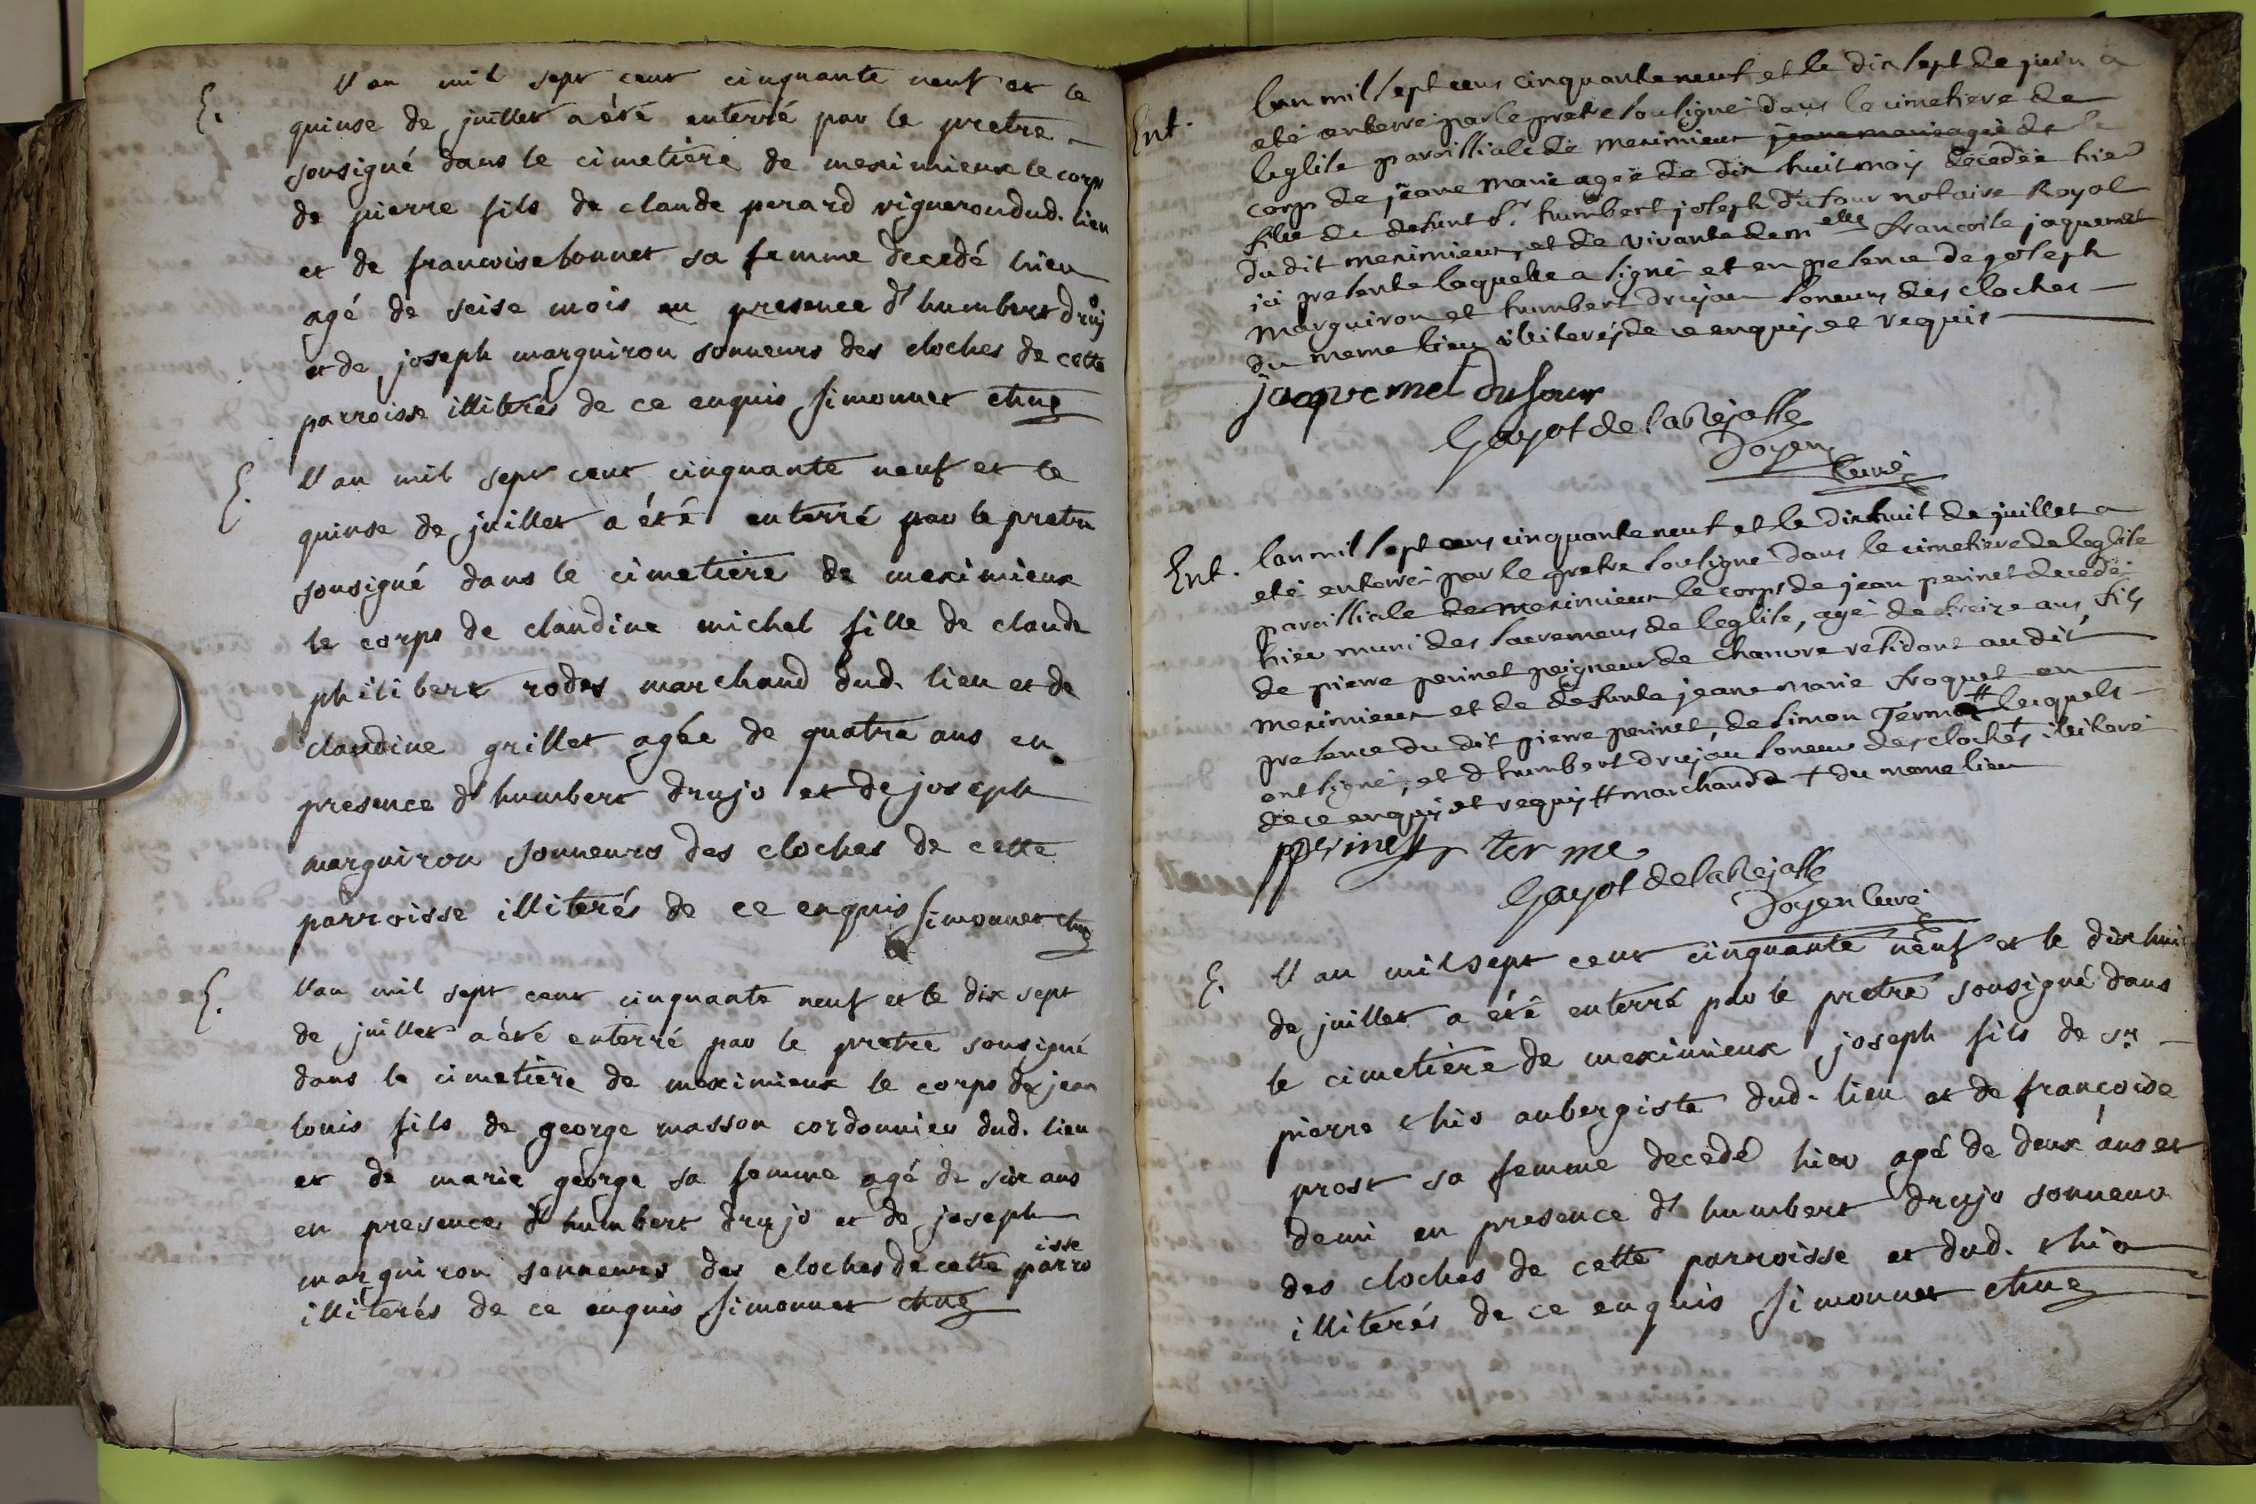 E. l'an mil sept cent cinquante neuf et le
quinse de juillet a été enterré par le pretre
sousigné dans le cimetière de meximieux le corps
de pierre fils de claude perard vigneron dud. lieu
et de francoise bonnet sa femme decedé hier
agé de seise mois en presence d'humbert drujo
et de joseph marguiron sonneurs des cloches de cette
parroisse illiterés de ce enquis simonnet
E. l'an mil sept cent cinquante neuf et le
quinse de juillet a été enterré par le pretre
sousigné dans le cimetière de meximieux
le corps de claudine michel fille de claude
philibert rodes marchand dud. lieu et de
claudine grillet agée de quatre ans en
presence d'humbert drujo et de joseph
marguiron sonneurs des cloches de cette
parroisse illiterés de ce enquis simonnet
E. l'an mil sept cent cinquante neuf et le dix sept
de juillet a été enterré par le pretre sousigné
dans le cimetière de meximieux le corps de jean
louis fils de george masson cordonnier dud. lieu
et de marie george sa femme agé de six ans
en presence d'humbert drujo et de joseph
marguiron sonneurs des cloches de cette parroisse
illiterés de ce enquis simonnet
Ent. lan mil sept cens cinquante neuf et le dix sept de juin a
eté enterré par le pretre sousigné dans le cimetiere de
leglise paroissiale de meximieux jeane marie agée de le
corps de jeane marie agée de dix huit mois decedée hier
fille de defunt Sr. humbert joseph dufour notaire Royal
du dit meximieux, et de vivante demelle francoise jaquemet
ici presente laquelle a signé et en presence de joseph
marguiron et humbert drujau soneurs des cloches
du meme lieu illiterés de ce enquis et requis
jacquemet dufour
Gayot de labejasse
Doyen
Curé
Ent. lan mil sept cens cinquante neuf et le dixhuit de juillet a
eté enterré par le pretre sousigné dans le cimetiere de leglise
paroissiale de meximieux le corps de jean perinet decedé
hier muni des sacremens de leglise, agé de treize ans fils
de pierre perinet peigneur de chanvre residant au dit
meximieux et de defunte jeane marie froquet en
presence du dit pierre perinet, de simon Terme # lesquels
ont signé, et d humbert drujau soneur des cloches + illiteré
de ce enquis et requis # marchands + du meme lieu
pperinet ter me
Gayot de labejasse
Doyen Curé
E. l'an mil sept cent cinquante neuf et le dix huit
de juillet a été enterré par le pretre sousigné dans
le cimetière de meximieux joseph fils de sr.
pierre thio aubergiste dud. lieu et de françoise
prost sa femme decedé hier agé de deux ans et
demi en presence d'humbert drujo sonneur
des cloches de cette parroisse et dud. thio
illiterés de ce enquis simonnet